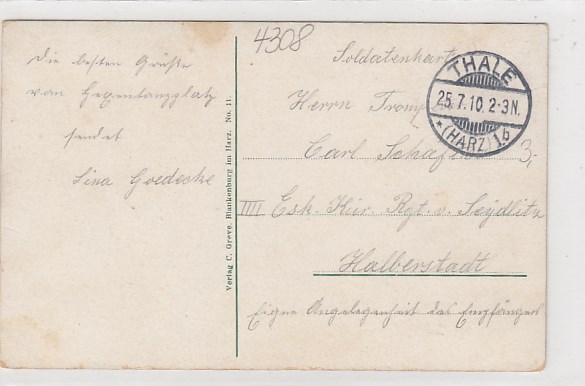 Die besten Grüße
vom Hexentanzplatz
sendet
Lina Goedecke
Verlag C. Greve, Blankenburg im Harz. No. 11.
4308
Soldatenkarte
THALE
25.7.10. 2-3N.
*(HARZ) 1b
Herrn
Carl Schäfer
3,-
IIII Esk. Kür. Rgt. v. Seydlitz
Halberstadt
Eigne Angelegenheit des Empfängers